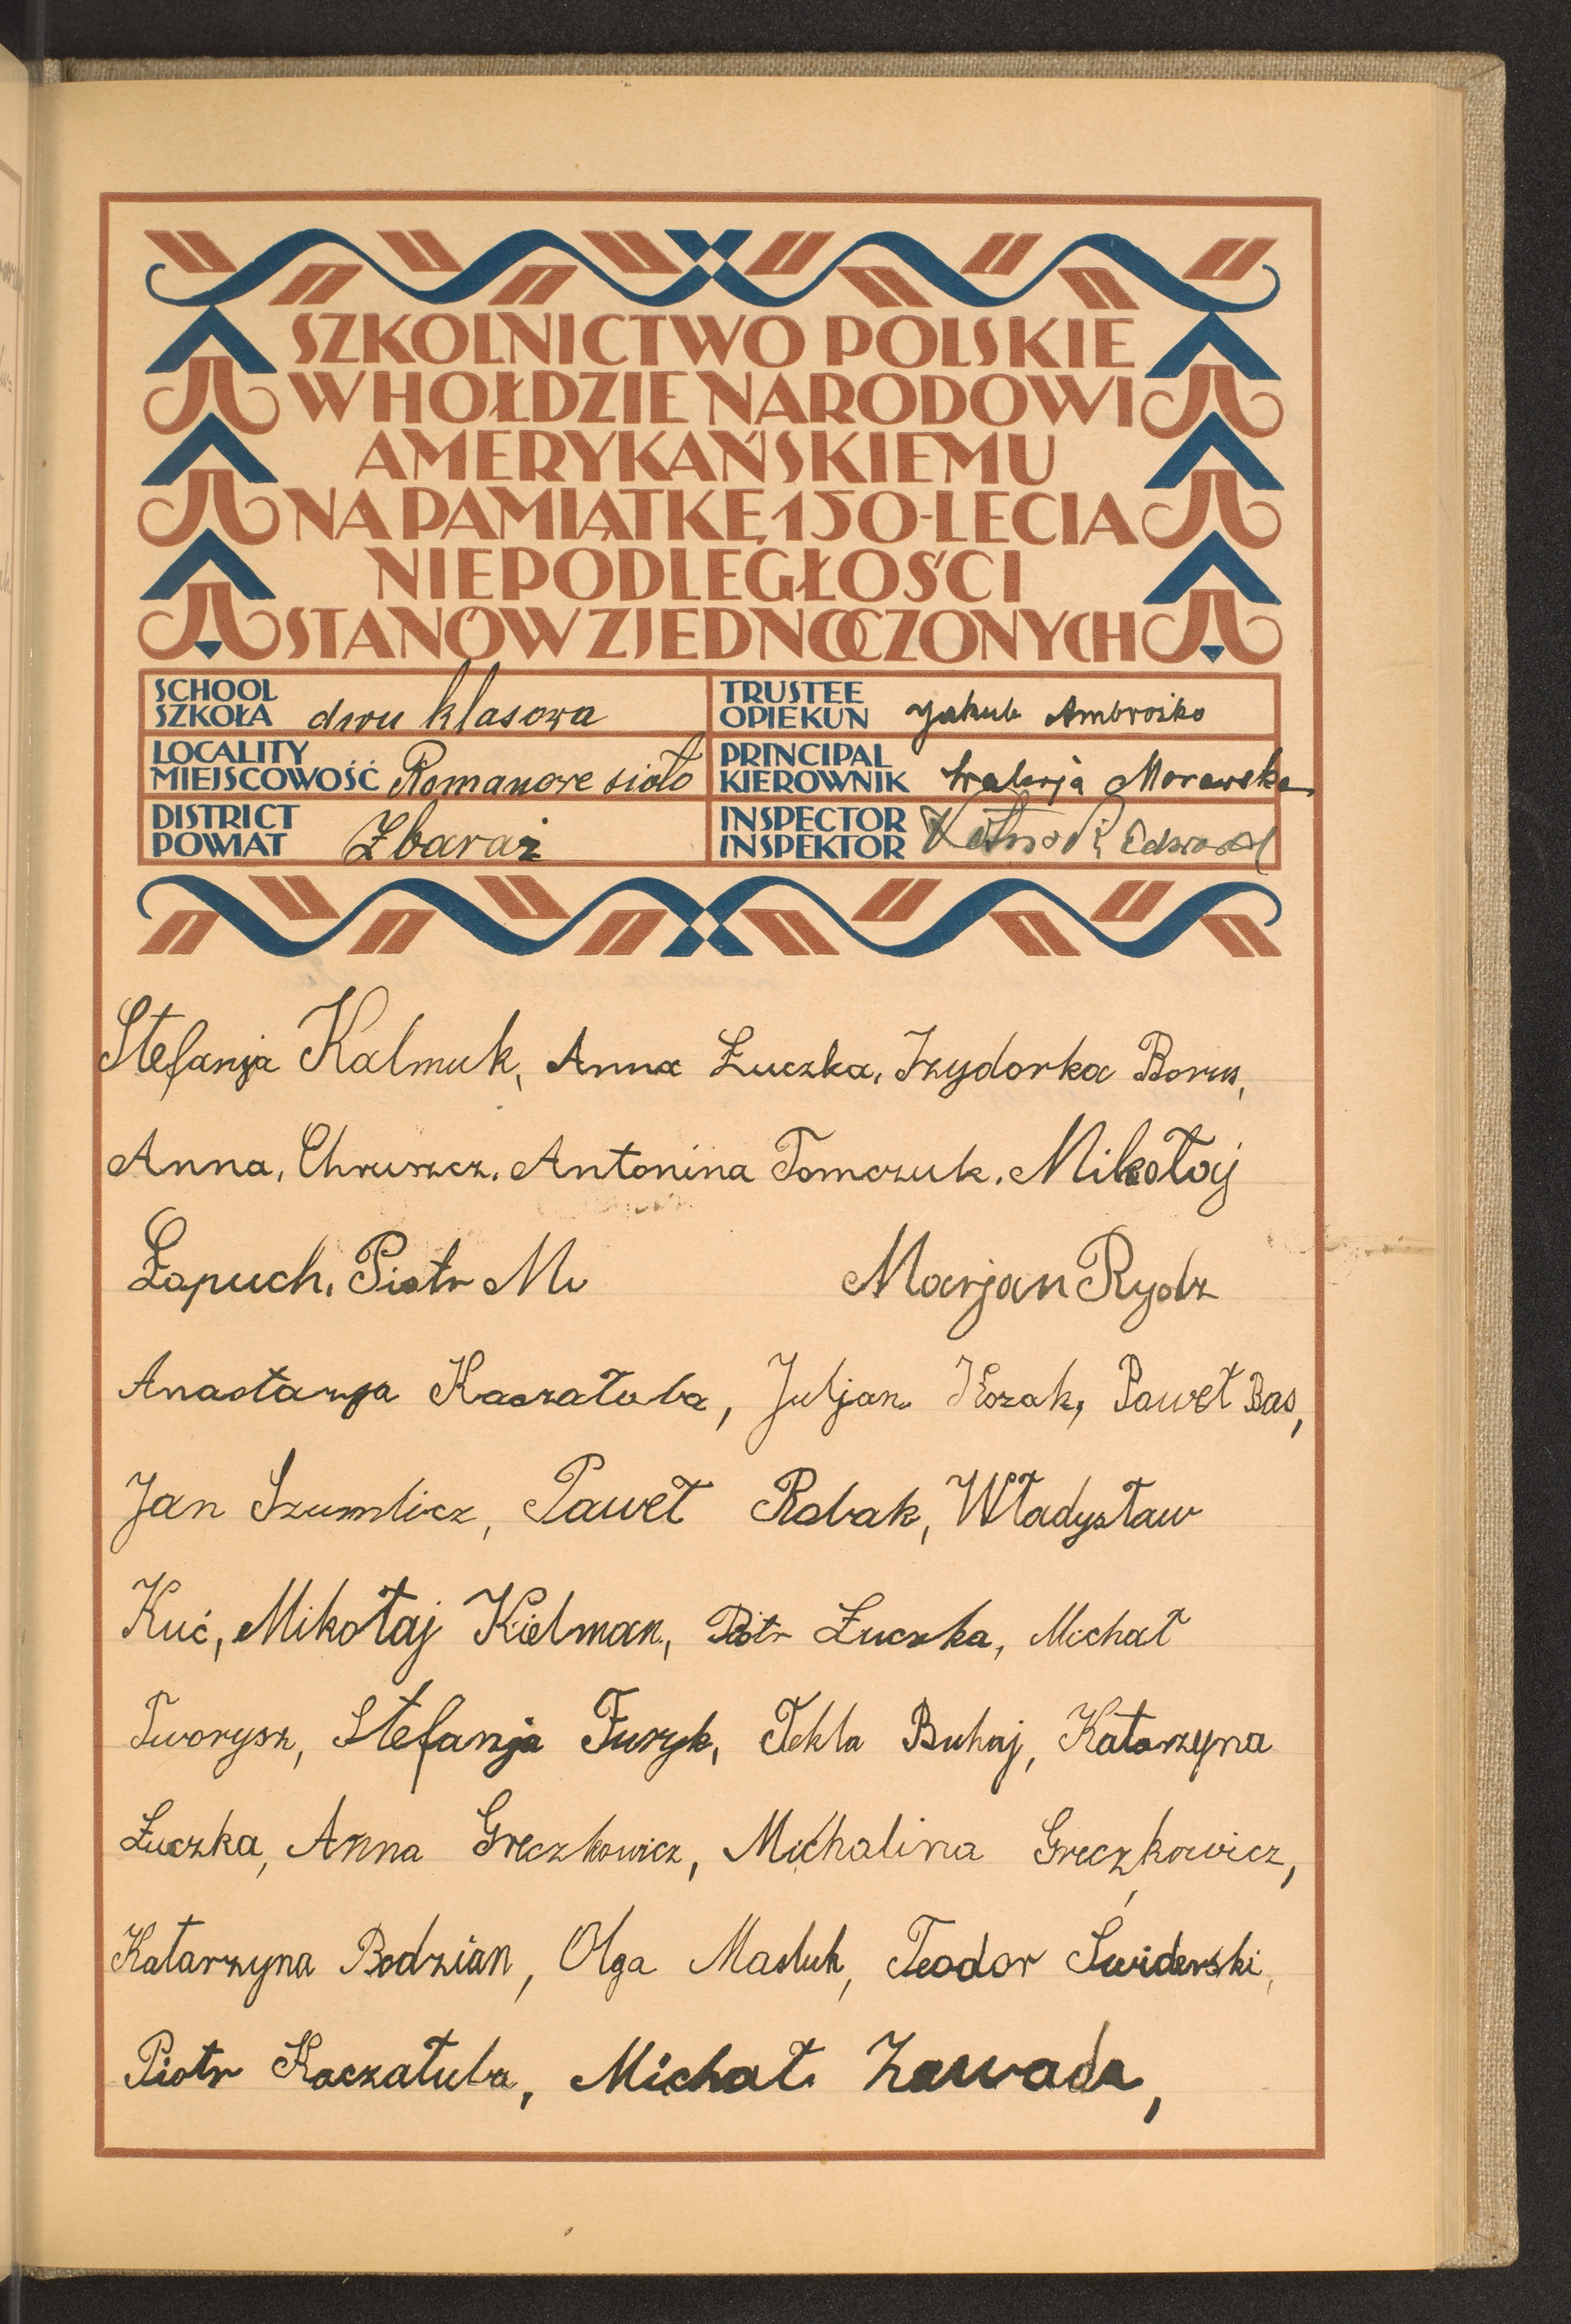 SZKOLNICTWO POLSKIE
W HOŁDZIE NARODOWI
AMERYKAŃSKIEMU
NA PAMIĄTKĘ 150-LECIA
NIEPODLEGŁOŚCI
STANÓW ZJEDNOCZONYCH
SCHOOL
SZKOŁA dwu klasowa
TRUSTEE
OPIEKUN Jakub Ambrożko
LOCALITY
MIEJSCOWOŚĆ Romanowe sioło
PRINCIPAL
KIEROWNIK Walerja Morawska
DISTRICT
POWIAT Zbaraż
INSPECTOR
INSPEKTOR Edward
Stefanja Kalmuk, Anna Łuczka, Izydorka Borus,
Anna, Chruszcz, Antonina Tomczuk, Mikołaj
Łapuch, Piotr M Marjan Rydz
Anastazja Kaczałuba, Juljan Kozak, Paweł Bas,
Jan Szumlicz, Paweł Robak, Władysław
Kuć, Mikołaj Kielman, Piotr Łuczka, Michał
Tworysz, Stefanja Furyk, Tekla Buhaj, Katarzyna
Łuczka, Anna Greczkowicz, Michalina Greczkowicz,
Katarzyna Bodzian, Olga Masluk, Teodor Świderski,
Piotr Kaczałuba, Michał Zawada,